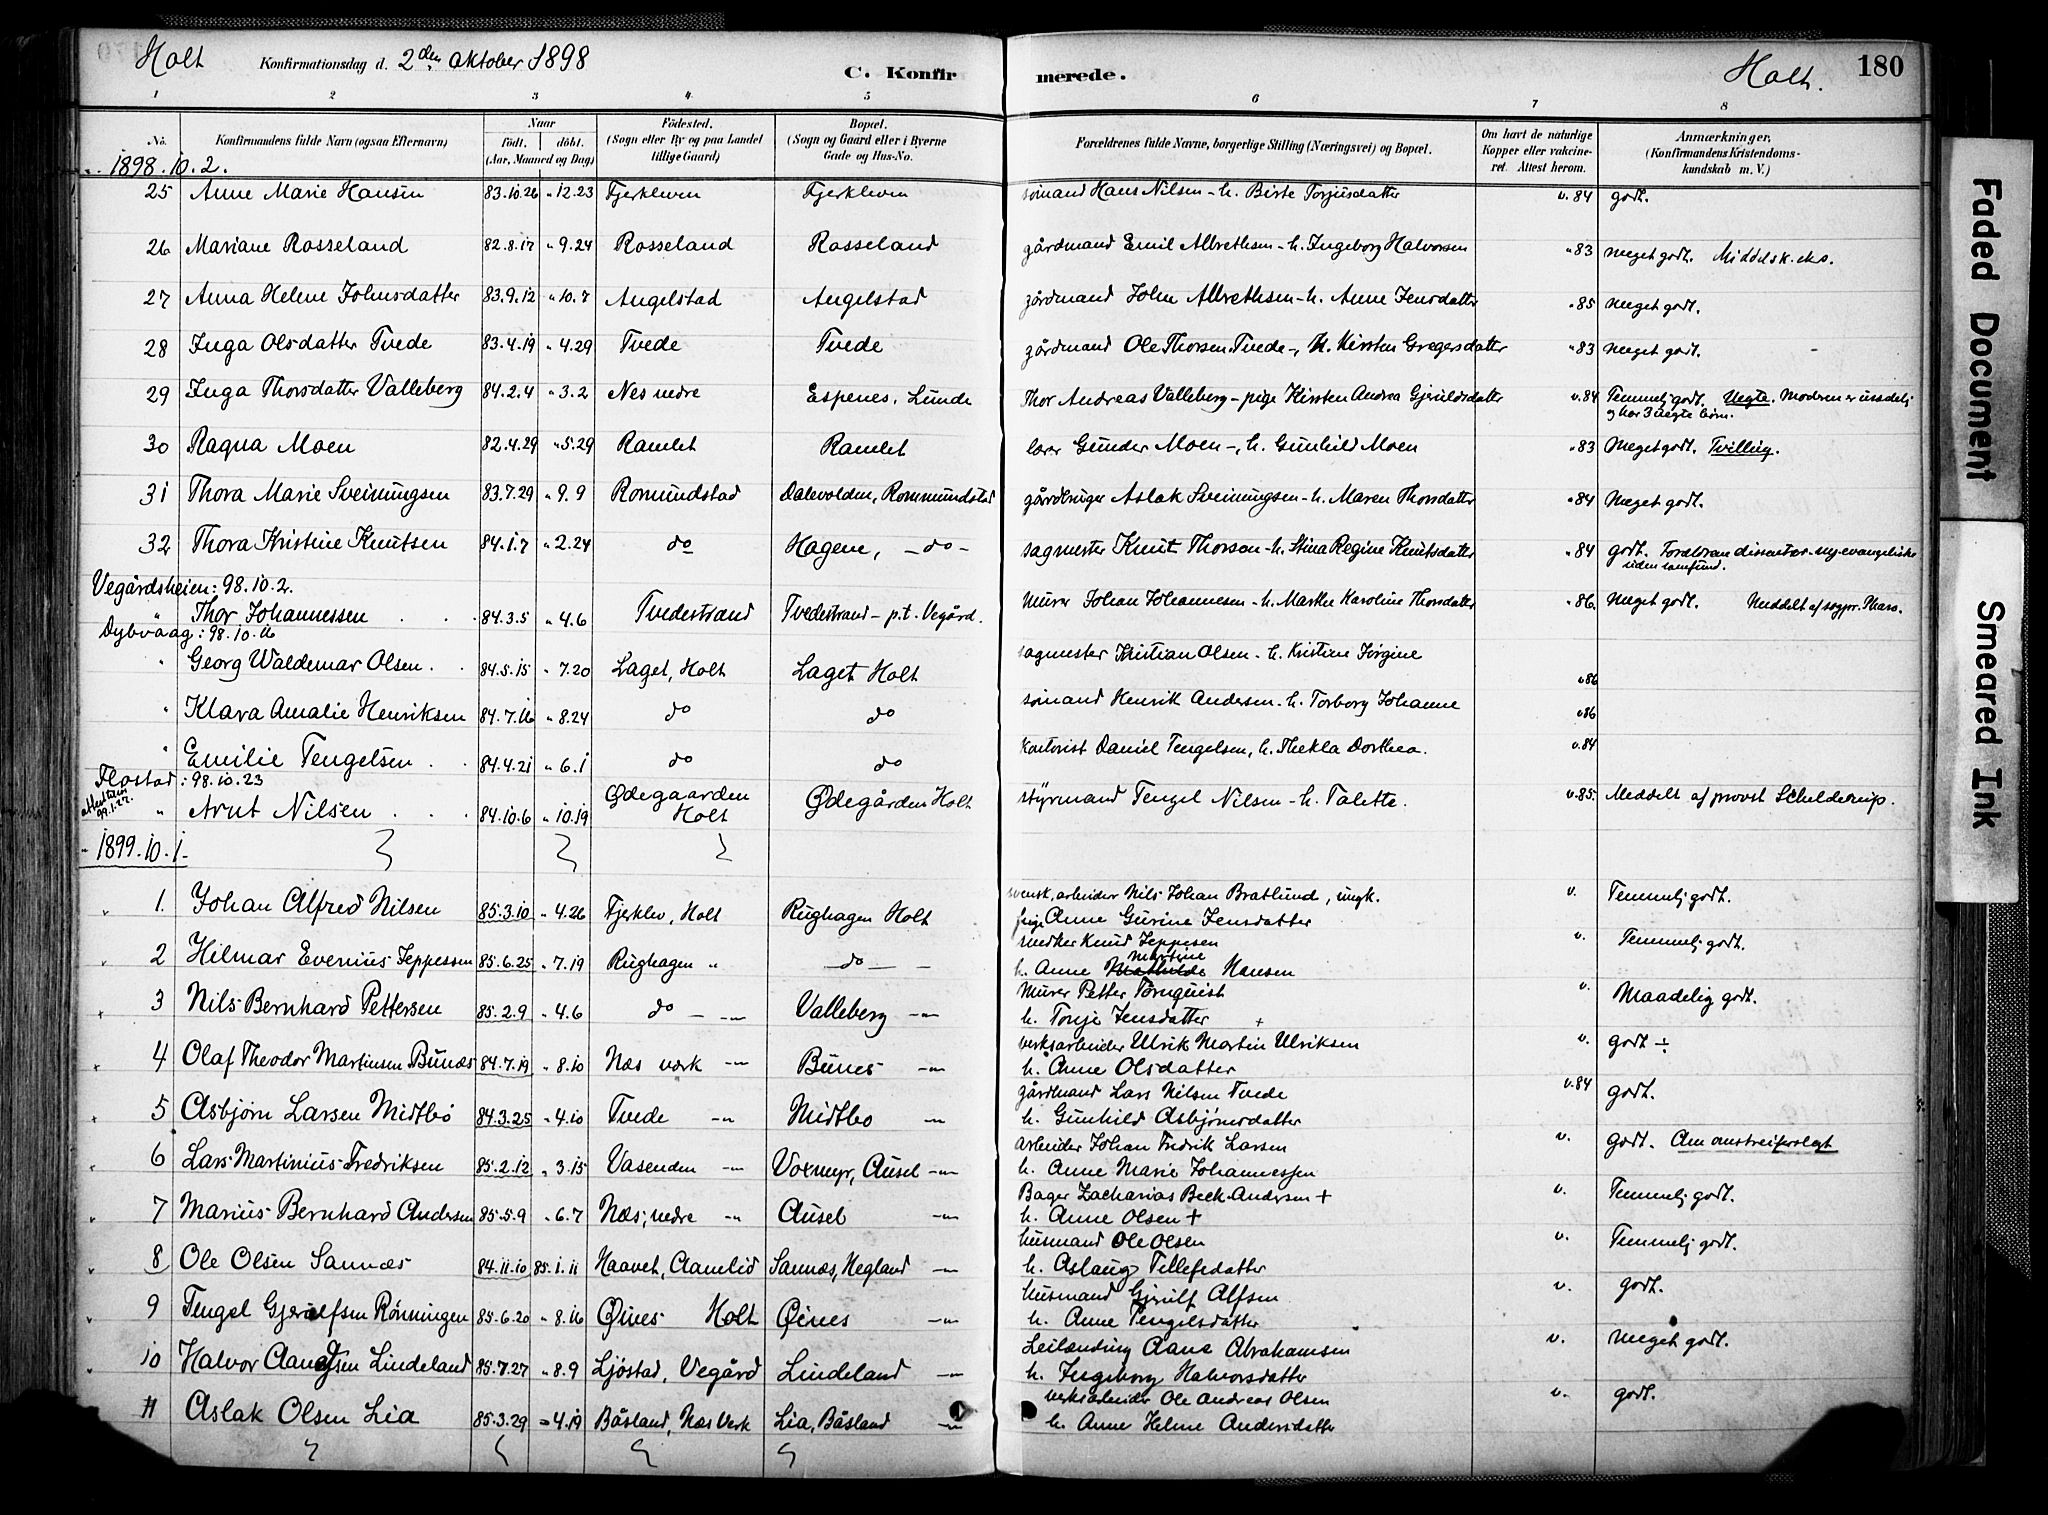 Holt Konfirmationsdag d. 2den oktober 1898 C. Konfir merede. Holt. 180
1 2 3 4 5 6 7 8
No. Konfirmandens fulde Navn (ogsaa Efternavn) Naar født. døbt. (Aar, Maaned og Dag) Födested. (Sogn eller By og paa Landet tillige Gaard) Bopæl. (Sogn og Gaard eller i Byerne Gade og Hus-No. Forældrenes fulde Navne, borgerlige Stilling (Næringsvei) og Bopæl. Om havt de naturlige Kopper eller vakcineret. Attest herom. Anmærkninger, (Konfirmandens Kristendomskundskab m. V.)
1898.10.2.
25 Anne Marie Hansen 83.10.26 " 12.23 Fjerkleiven Fjerkleiven sømand Hans Nilsen - h. Birte Torjusdatter v.84 godt.
26 Mariane Rosseland 82.8.17 " 9.24 Rosseland Rosseland gårdmand Emil Albrethsen - h. Ingeborg Halvorsen " 83 meget godt. Middelsk. eks.
27 Anna Helene Johnsdatter 83.9.12 " 10.7 Angelstad Angelstad gårdmand John Albrethsen - h. Anne Jensdatter " 85 meget godt.
28 Inga Olsdatter Tvede 83.4.19 " 4.29 Tvede Tvede gårdmand Ole Thorsen Tvede -, h. Kirsten Gregersdatter " 83 meget godt.
29 Inga Thorsdatter Valleberg 84.2.4 " 3.2 Nes nedre Espenes, Lunde Thor Andreas Valleberg - pige Kirsten Andrea Gjeruldsdatter v.84 Temmelj godt. Uegte. Moderen er
og har 3 uegte børn.
30 Ragna Moen 82.4.29 " 5.29 Ramlet Ramlet lærer Gunder Moen -, h. Gunhild Moen " 83 Meget godt. Tvilling.
31 Thora Marie Sveinungsen 83.7.29 " 9.9 Romundstad Dalevolden, Rommundstad gårdbruger Aslak Sveinungsen - h. Maren Thorsdatter " 84 Meget godt.
32 Thora Kristine Knutsen 84.1.7 " 2.24 do Hagene, - do - sagmester Knut Thorsen - h. Stina Regine Knutsdatter " 84 godt. Forældrene dissentær
uden samfund.
Vegårdsheien: 98.10.2.
" Thor Johannessen 84.3.5 " 4.6 Tvedestrand Tvedestrand - p.t. Vegård. Murer Johan Johannesen - h. Marthe Karoline Thorsdatter " 86. Meget godt. Meddelt af sogpr.
Dybvaag: 98.10.16
" Georg Waldemar Olsen 84.5.15 " 7.20 Laget, Holt Laget Holt sagmester Kristian Olsen - h. Kristine Jørgine v86
" Klara Amalie Henriksen 84.7.16 " 8.24 do do sømand Henrik Andersen - h. Torborg Johanne v86
" Emilie Tengelsen 84.4.21 " 6.1 do do kontorist Daniel Tengelsen, h. Thekla Dorthea. v.84
Flostad: 98.10.23
99.1.22.
" Arnt Nilsen 84.10.6 " 10.19 Ødegaarden Holt Ødegården Holt styrmand Tengel Nilsen - h. Talette. v.85. Meddelt af provst Schelderup.
1899.10.1.
1. Johan Alfred Nilsen 85.3.10 " 4.26 Fjerklev, Holt Rughagen Holt svensk, arbeider Nils Johan Bratlund, ungk.
pige Anne Gurine Jensdatter v. Temmelj godt.
2 Hilmar Evenius Jeppessen 85.6.25 " 7.19 Rughagen " - do - - snedker Knud Jeppesen
h. Anne Mathilde Martine Hansen v. Temmelj godt.
3 Nils Bernhard Pettersen 85.2.9 " 4.6 do - " Valleberg " Murer Petter Törnquist
h. Tonje Jensdatter + v. Maadelig godt.
4 Olaf Theodor Martinsen Bunæs 84.7.19 " 8.10 Næs værk " Bunes " verksarbeider Ulrik Martin Ulriksen
h. Anne Olsdatter v. godt ÷
5 Asbjørn Larsen Midtbø 84.3.25 " 4.10 Tvede " Midtbo " gårdmand Lars Nilsen Tvede
h. Gunhild Asbjörnsdatter v.84 godt.
6 Lars Martinius Fredriksen 85.2.12 " 3.15 Vasenden " Voxmyr, Ausel " arbeider Johan Fredrik Larsen
h. Anne Marie Johannessen v. godt.
7 Marius Bernhard Andersen 85.5.9 " 6.7 Næs, nedre " Ausel " Bager Zacharias Beck Andersen +
h. Anne Olsen + v. Temmelj godt.
8 Ole Olsen Sannæs 84.11.10 85.1.11 Haavet, Aamlid Sannæs, Hegland " husmand Ole Olsen
h. Aslaug Tellefsdatter v. Temmelj godt.
9 Tengel Gjerulfsen Rönningen 85.6.20 " 8.16 Øines Holt Øines " husmand Gjerulf Alfsen
h. Anne Tengelsdatter v. godt.
10 Halvor Aanesen Lindeland 85.7.27 " 8.9 Ljöstad, Vegård Lindeland " Leilænding Aane Abrahamsen
h. Ingeborg Halvorsdatter v. meget godt.
11 Aslak Olsen Lia 85.3.29 " 4.19 Båsland, Næs Verk Lia, Båsland " verksarbeider Ole Andreas Olsen
h. Anne Helene Andersdatter v. godt.
Faded Document
Smeared Ink